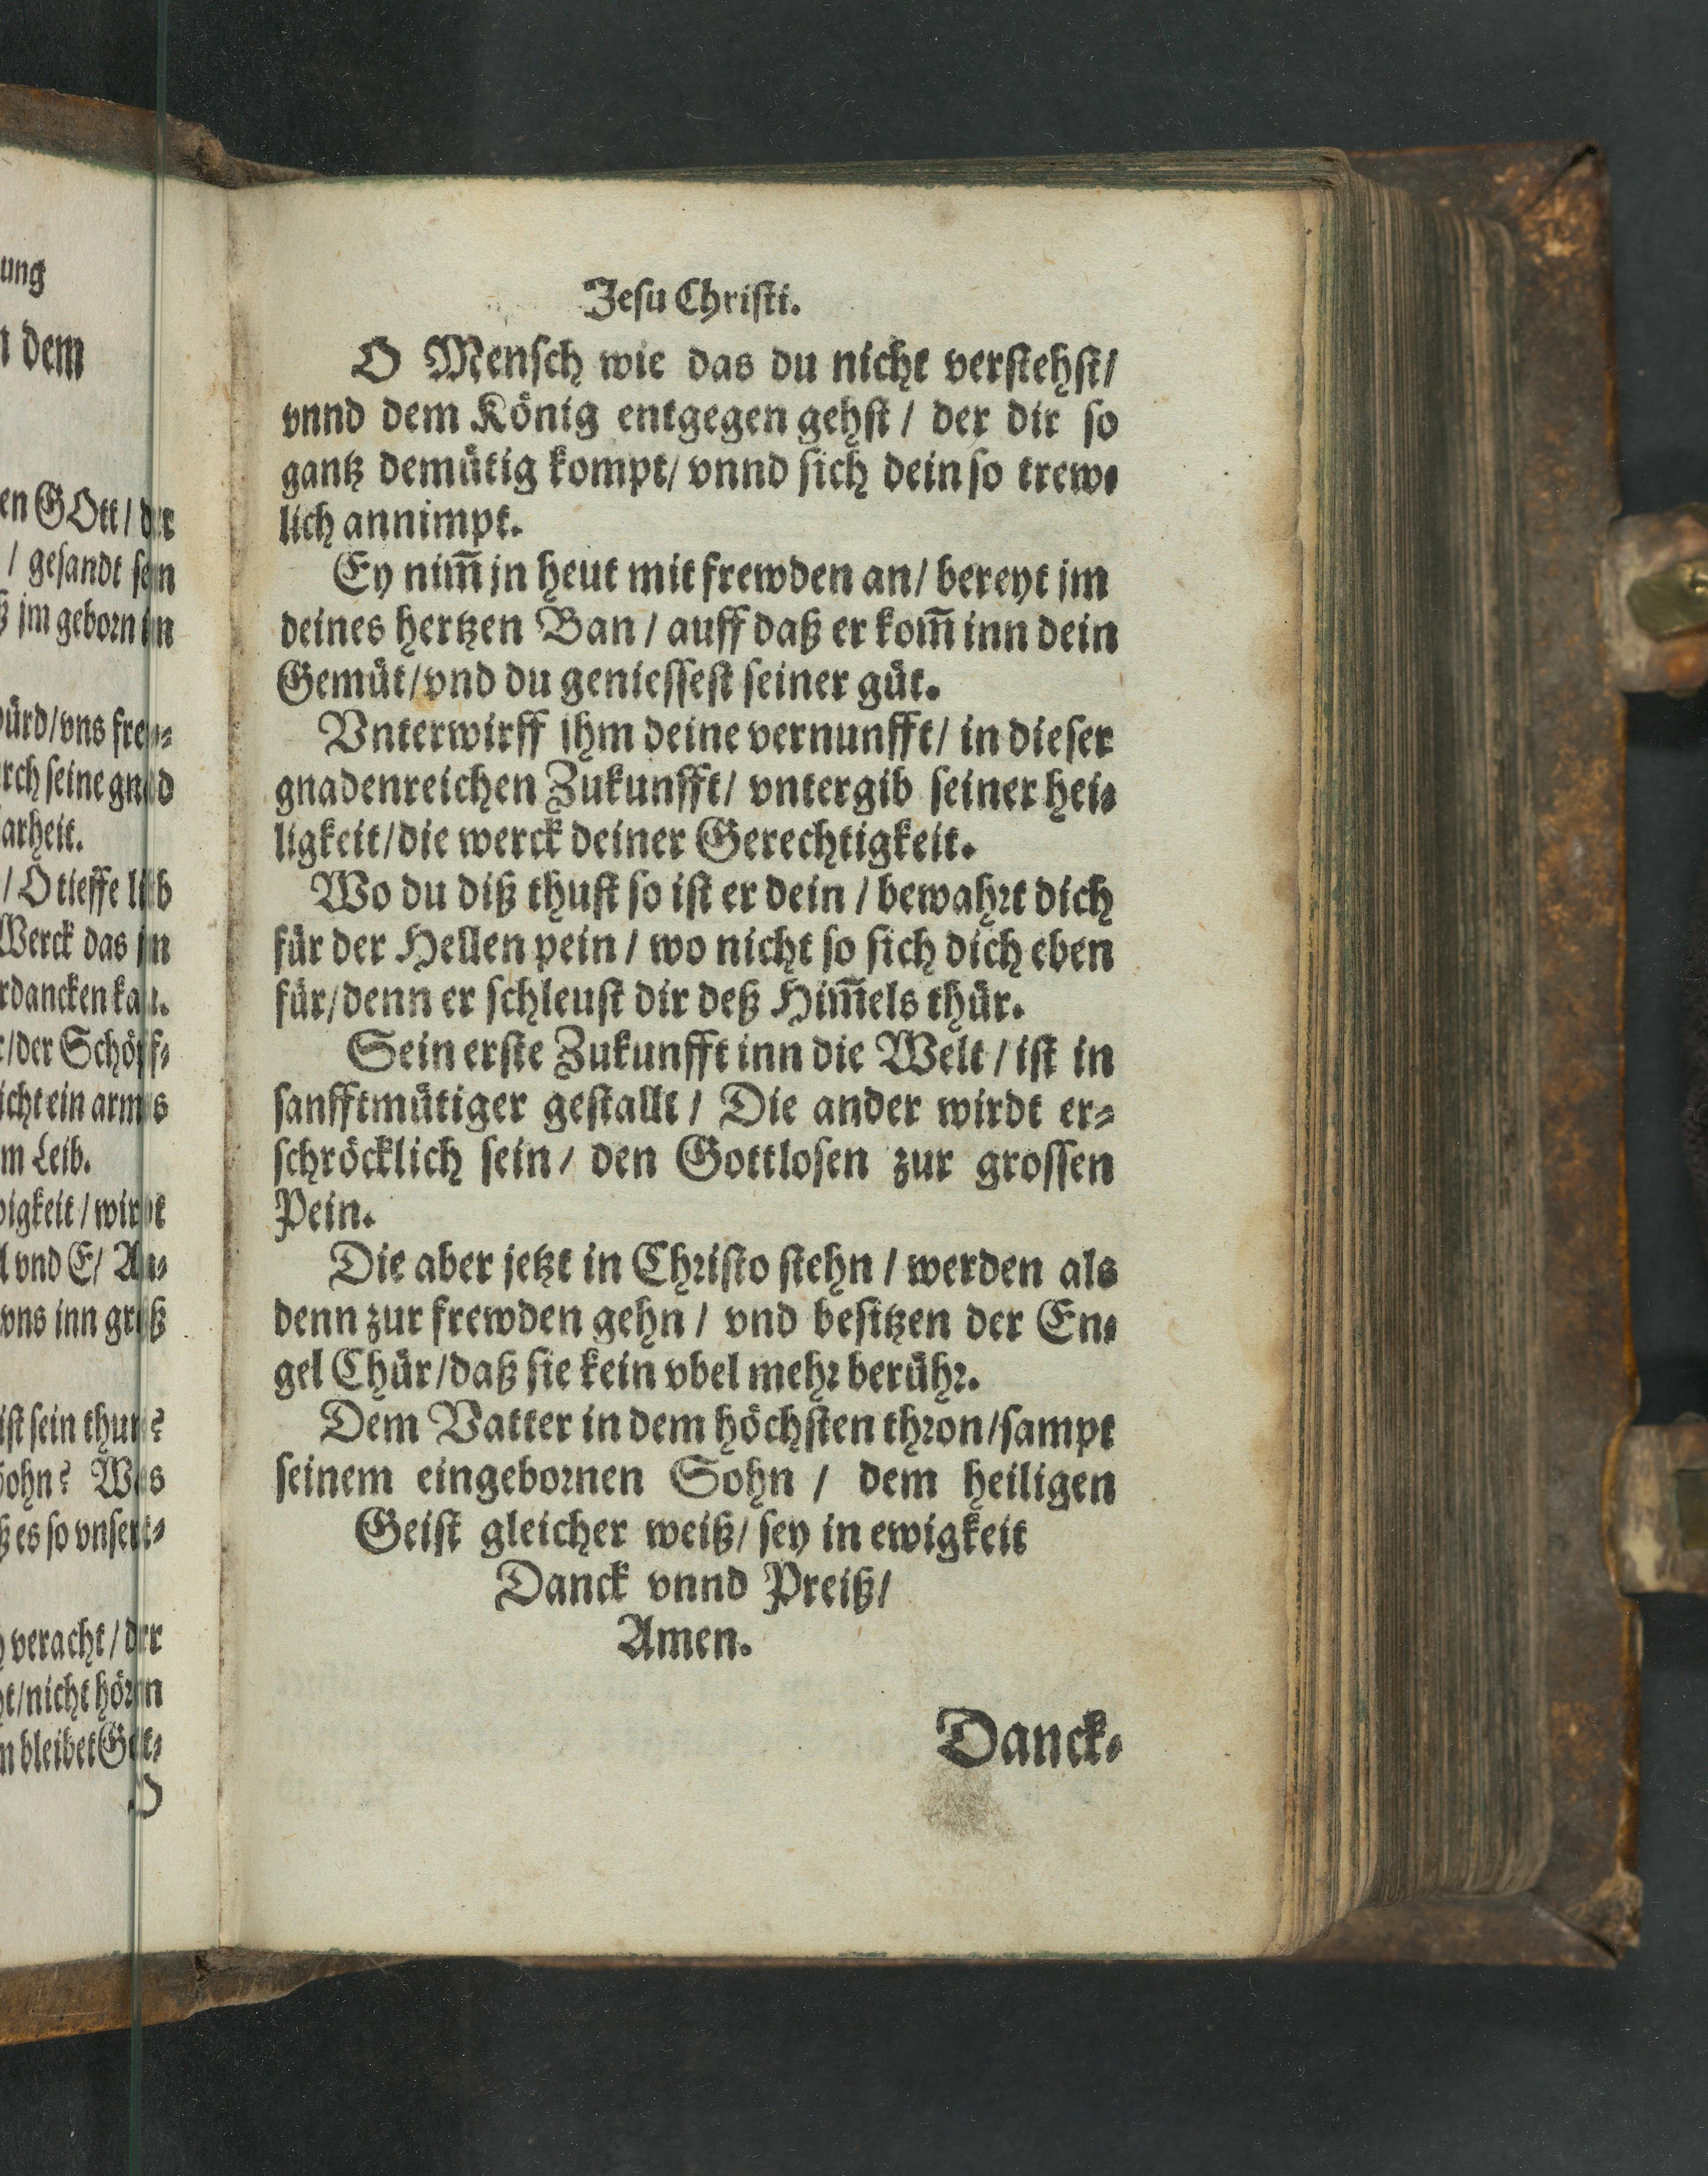 ung
dem
en GOtt/ der
/ gesandt sein
ß jm geborn
ürd/vns
rch seine gnad
arheit.
/ O tieffe lieb
Werck das
rdancken kan.
/der Schöpf-
icht ein armes
m Leib.
igkeit / wirdt
vnd E/
vns inn groß
ist sein
ohn? Was
ß es so
veracht / der
t/nicht hören
n bleibet Got-
O
Jesu Christi.
O Mensch wie das du nicht verstehst/
vnnd dem König entgegen gehst / der dir so
gantz demütig kompt/ vnnd sich dein so trew-
lich annimpt.
Ey nim̃ jn heut mit frewden an/ bereyt jm
deines hertzen Ban / auff daß er kom̃ inn dein
Gemüt/vnd du geniessest seiner güt.
Vnterwirff jhm deine vernunfft/ in dieser
gnadenreichen Zukunfft/ vntergib seiner hei-
ligkeit/die werck deiner Gerechtigkeit.
Wo du diß thust so ist er dein / bewahrt dich
für der Hellen pein / wo nicht so sich dich eben
für/denn er schleust dir deß Him̃els thür.
Sein erste Zukunfft inn die Welt / ist in
sanfftmütiger gestallt / Die ander wirdt er-
schröcklich sein/ den Gottlosen zur grossen
Pein.
Die aber jetzt in Christo stehn / werden als
denn zur frewden gehn / vnd besitzen der En-
gel Chür/daß sie kein vbel mehr berühr.
Dem Vatter in dem höchsten thron/sampt
seinem eingebornen Sohn / dem heiligen
Geist gleicher weiß/ sey in ewigkeit
Danck vnnd Preiß/
Amen.
Danck-